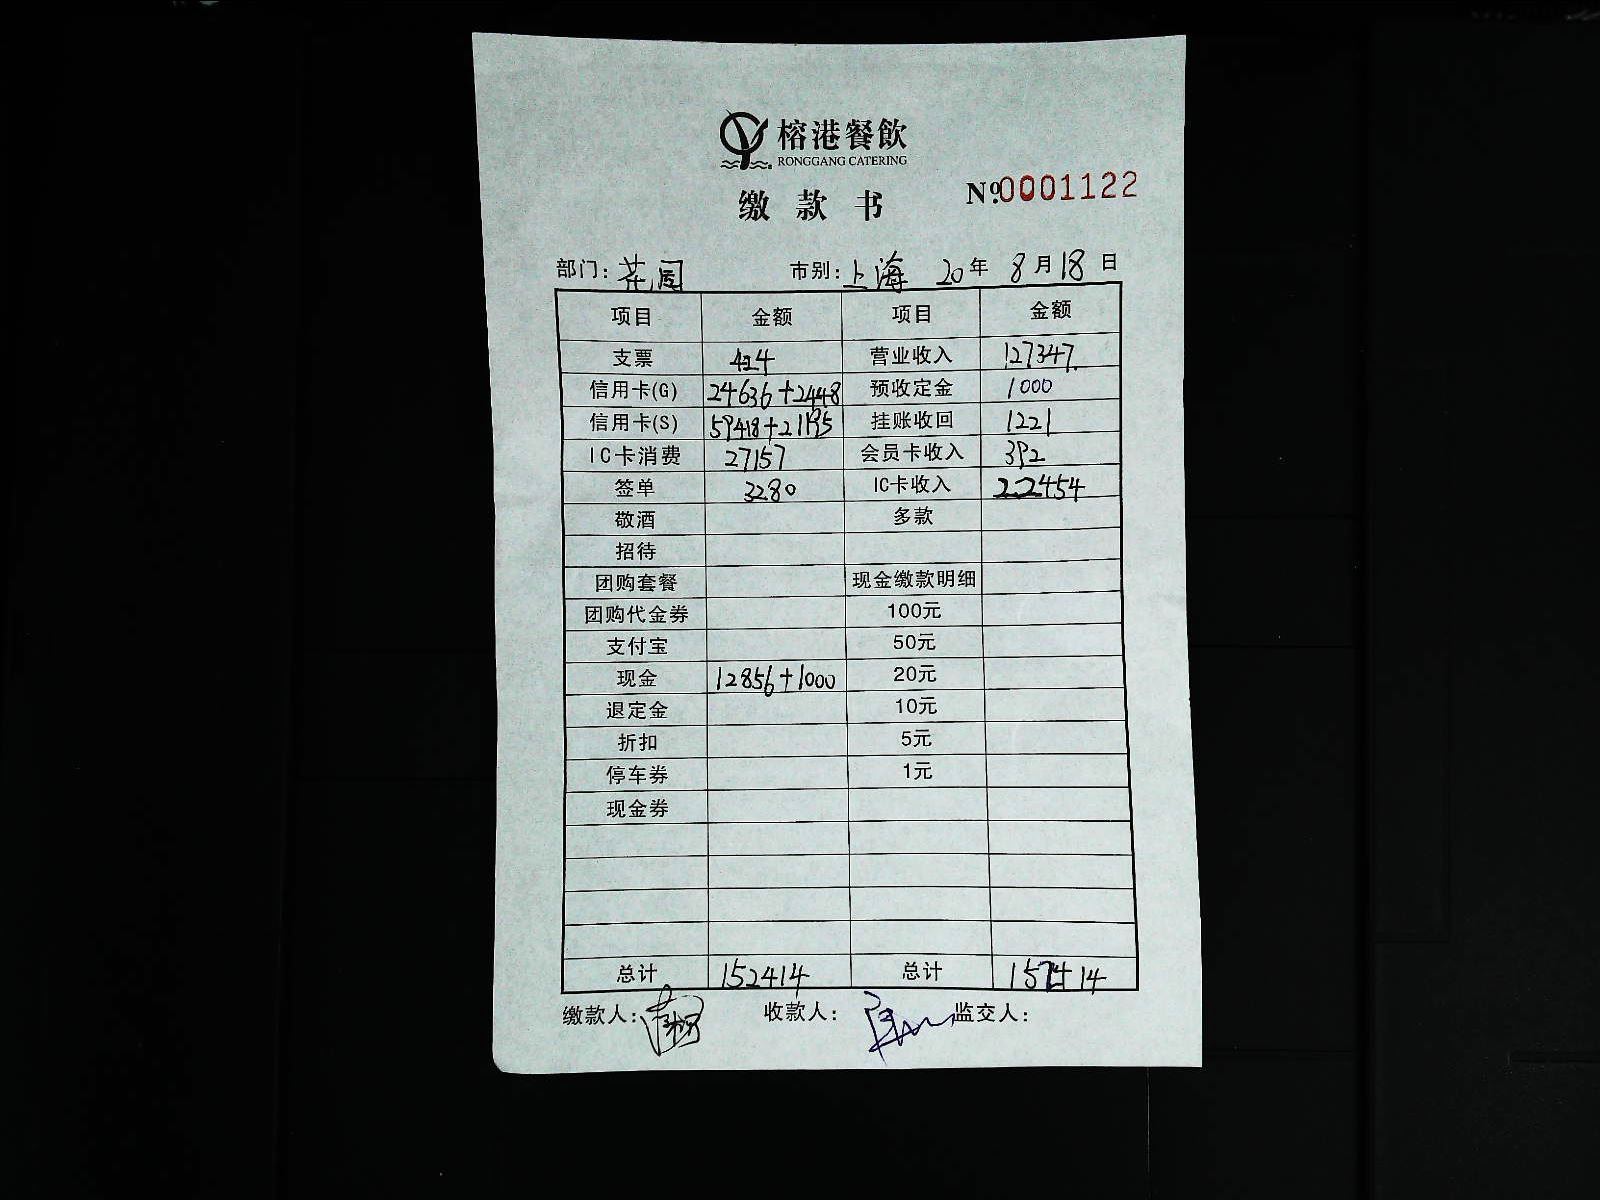 榕港餐飲
RONGGANG CATERING
缴款书 Nº.0001122
部门：花园 市别：上海 20年8月18日
项目 金额 项目 金额
支票 424 营业收入 127347.
信用卡(G) 24636+2448 预收定金 1000
信用卡(S) 59418+21195 挂账收回 1221
IC卡消费 27157 会员卡收入 392
签单 3280 IC卡收入 22454
敬酒 多款
招待
团购套餐 现金缴款明细
团购代金券 100元
支付宝 50元
现金 12856+1000 20元
退定金 10元
折扣 5元
停车券 1元
现金券
总计 152414 总计 152414
缴款人： 收款人： 监交人：